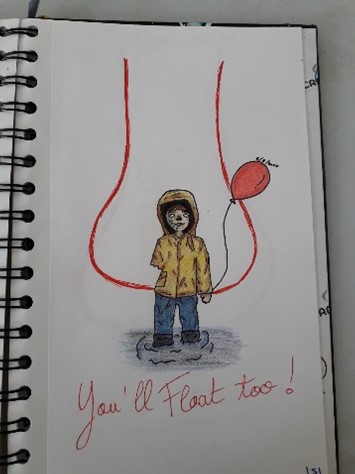 You'll Float too!